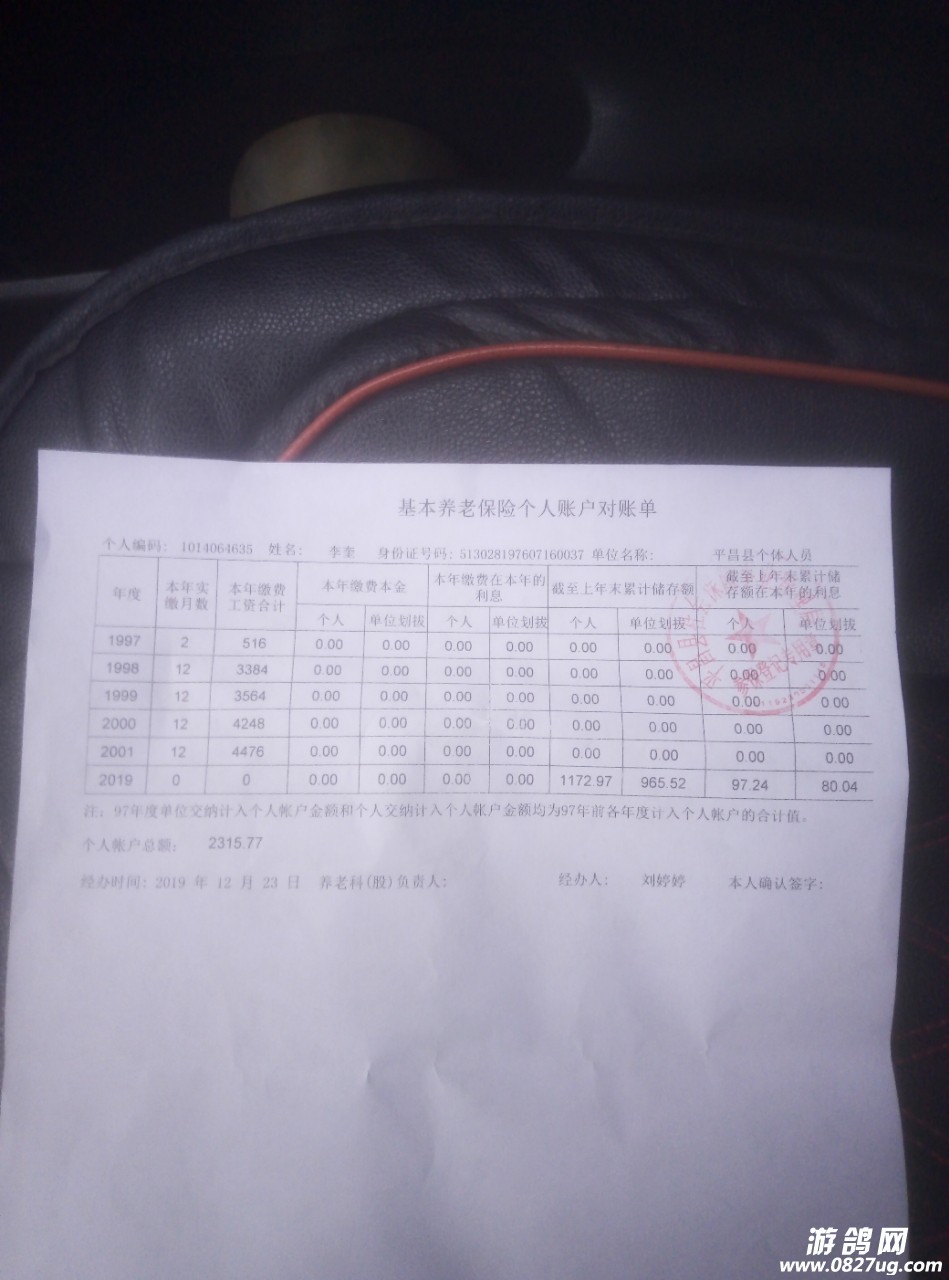 基本养老保险个人账户对账单
个人编码: 1014064635 姓名: 李奎 身份证号码: 513028197607160037 单位名称: 平昌县个体人员
年度 本年实缴月数 本年缴费工资合计 本年缴费本金 本年缴费在本年的利息 截至上年末累计储存额 截至上年末累计储存额在本年的利息
个人 单位划拨 个人 单位划拨 个人 单位划拨 个人 单位划拨
1997 2 516 0.00 0.00 0.00 0.00 0.00 0.00 0.00 0.00
1998 12 3384 0.00 0.00 0.00 0.00 0.00 0.00 0.00 0.00
1999 12 3564 0.00 0.00 0.00 0.00 0.00 0.00 0.00 0.00
2000 12 4248 0.00 0.00 0.00 0.00 0.00 0.00 0.00 0.00
2001 12 4476 0.00 0.00 0.00 0.00 0.00 0.00 0.00 0.00
2019 0 0 0.00 0.00 0.00 0.00 1172.97 965.52 97.24 80.04
注: 97年度单位交纳计入个人帐户金额和个人交纳计入个人帐户金额均为97年前各年度计入个人帐户的合计值。
个人帐户总额: 2315.77
经办时间: 2019 年 12 月 23 日 养老科(股)负责人: 经办人: 刘婷婷 本人确认签字:
游鸽网
www.0827ug.com